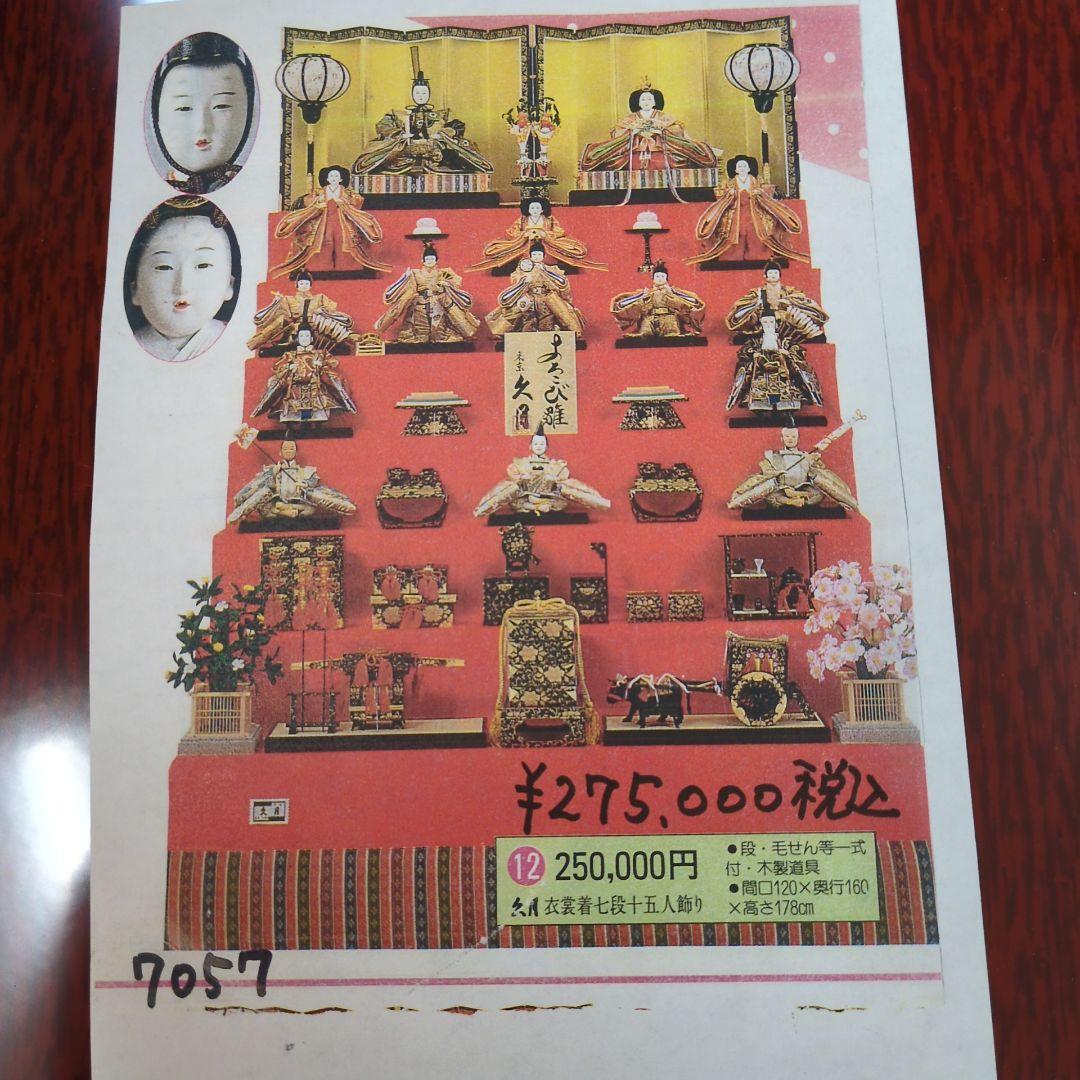 よろこび雛
東京 久月
¥275,000税込
久月
12 250,000円
久月 衣裳着七段十五人飾り
●段・毛せん等一式
付・木製道具
●間口120×奥行160
×高さ178cm
7057